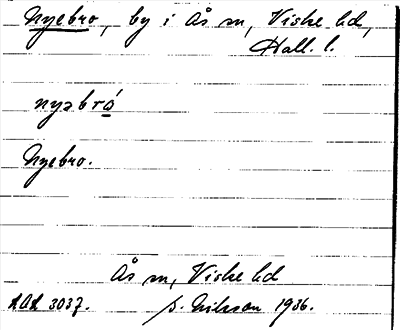 Nyebro, by i Ås sn, Viske hd,
Hall. l.
nyəbró
Nyebro.
Ås sn, Viske hd
3037. Nilsson 1936.